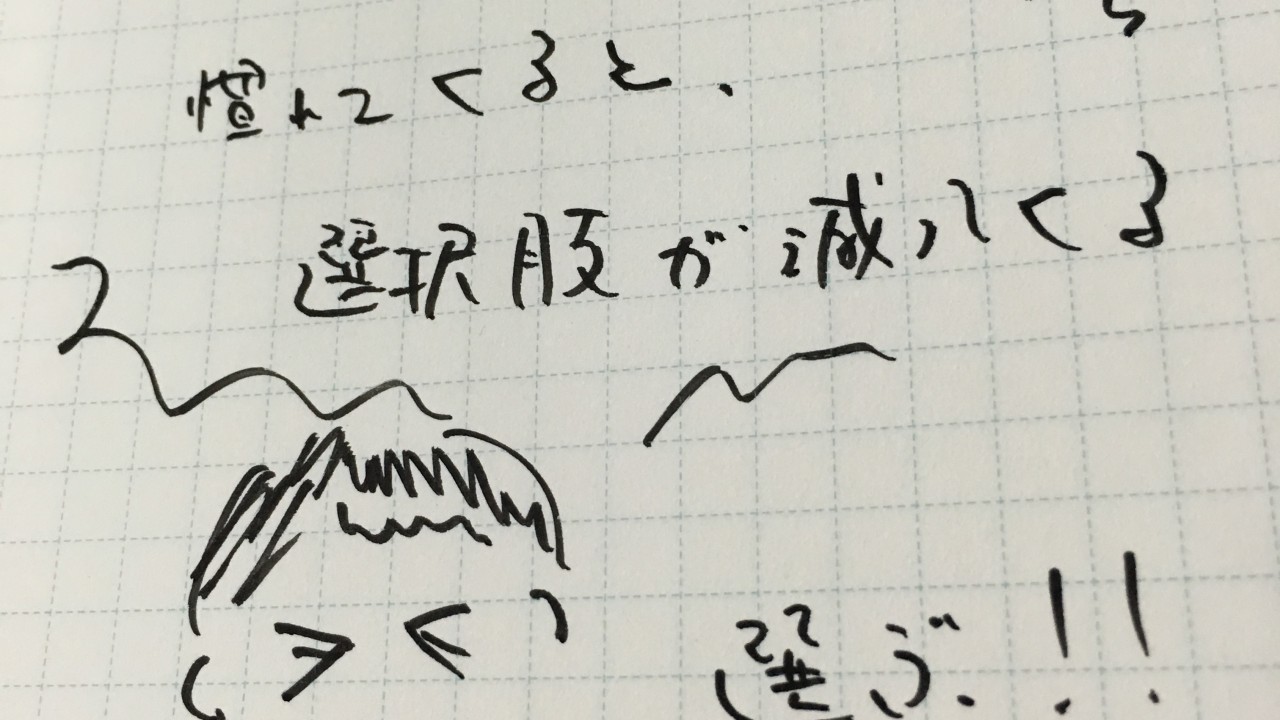 慣れてくると、
選択股が減ってくる
選ぶ!!